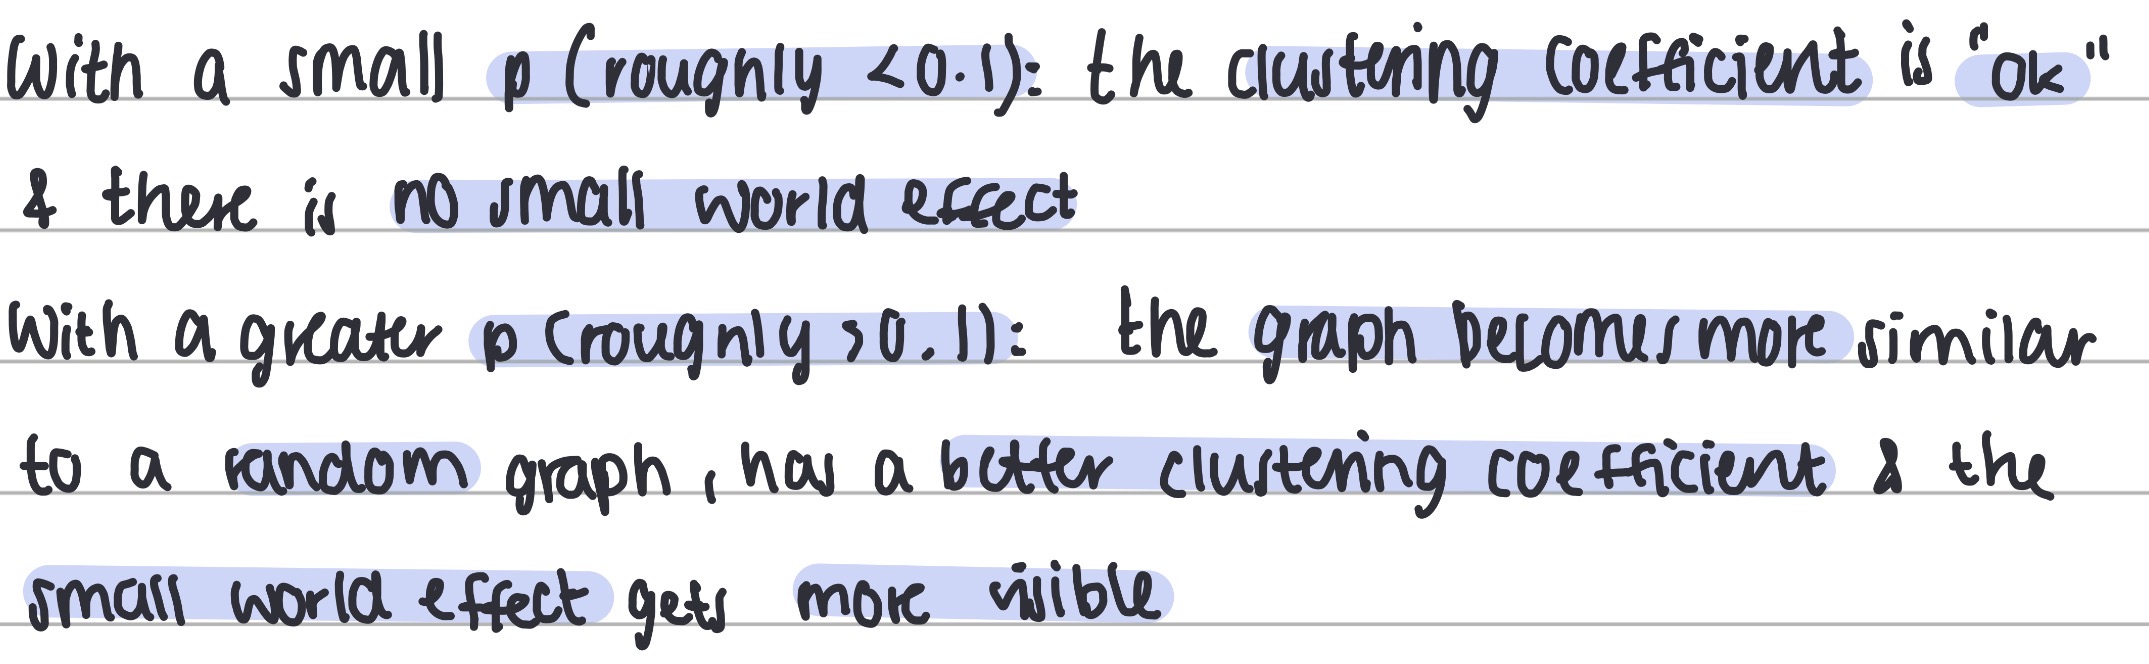 With a small p (roughly <0.1): the clustering coefficient is "ok"
& there is no small world effect
With a greater p (roughly >0.1): the graph becomes more similar
to a random graph, has a better clustering coefficient & the
small world effect gets more visible